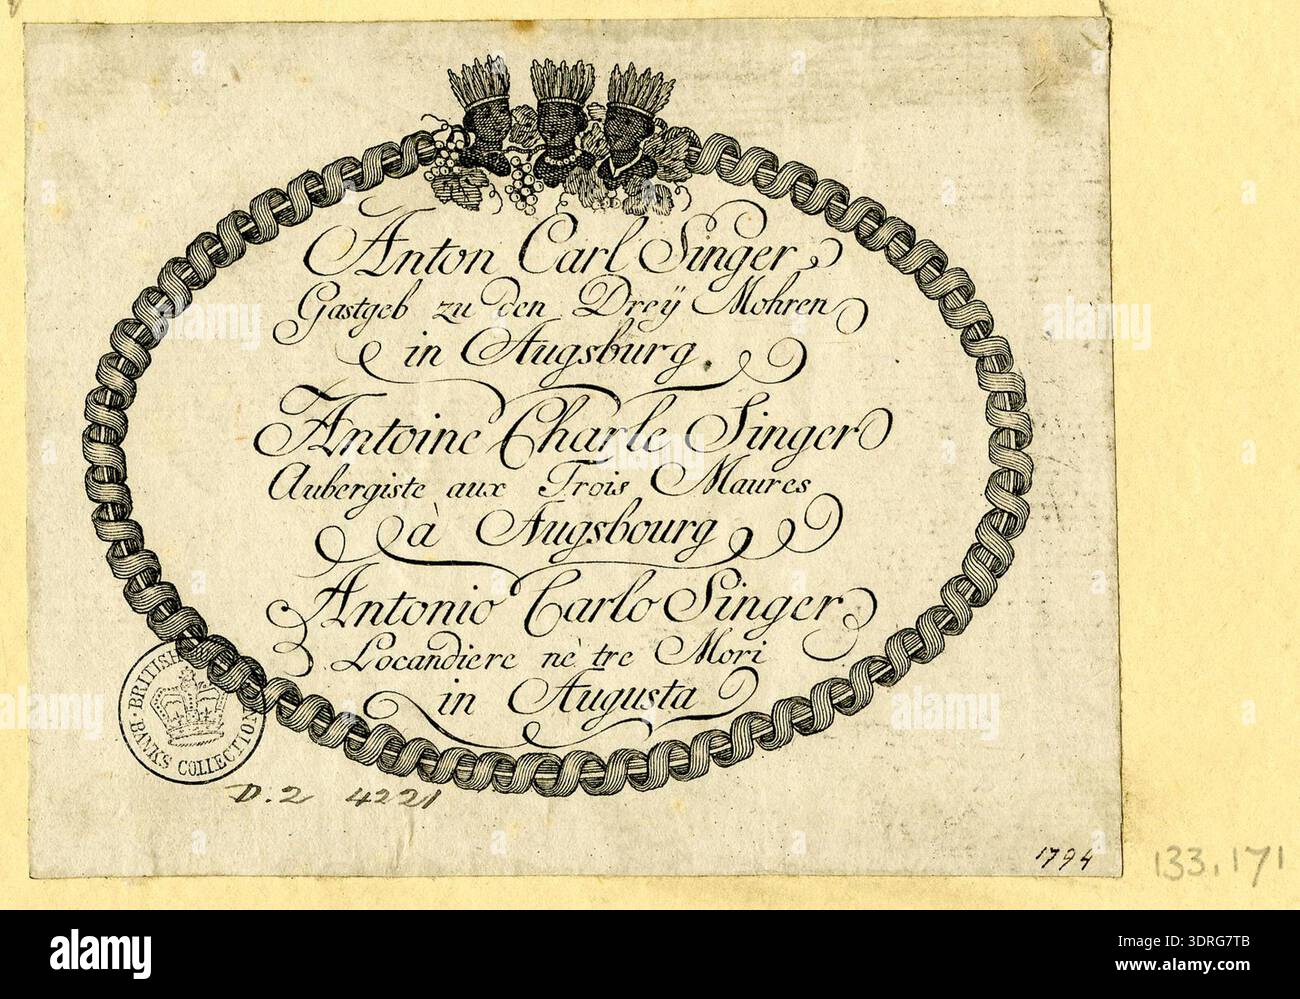 Anton Carl Singer
Gastgeb zu den Dreÿ Mohren
in Augsburg.
Antoine Charle Singer
Aubergiste aux Trois Maures
à Augsbourg
Antonio Carlo Singer
Locandiere nè tre Mori
in Augusta
BRITISH
BANKS COLLECTION
D.2 4221
1794
133.171
alamy
Image ID: 3DRG7TB
www.alamy.com